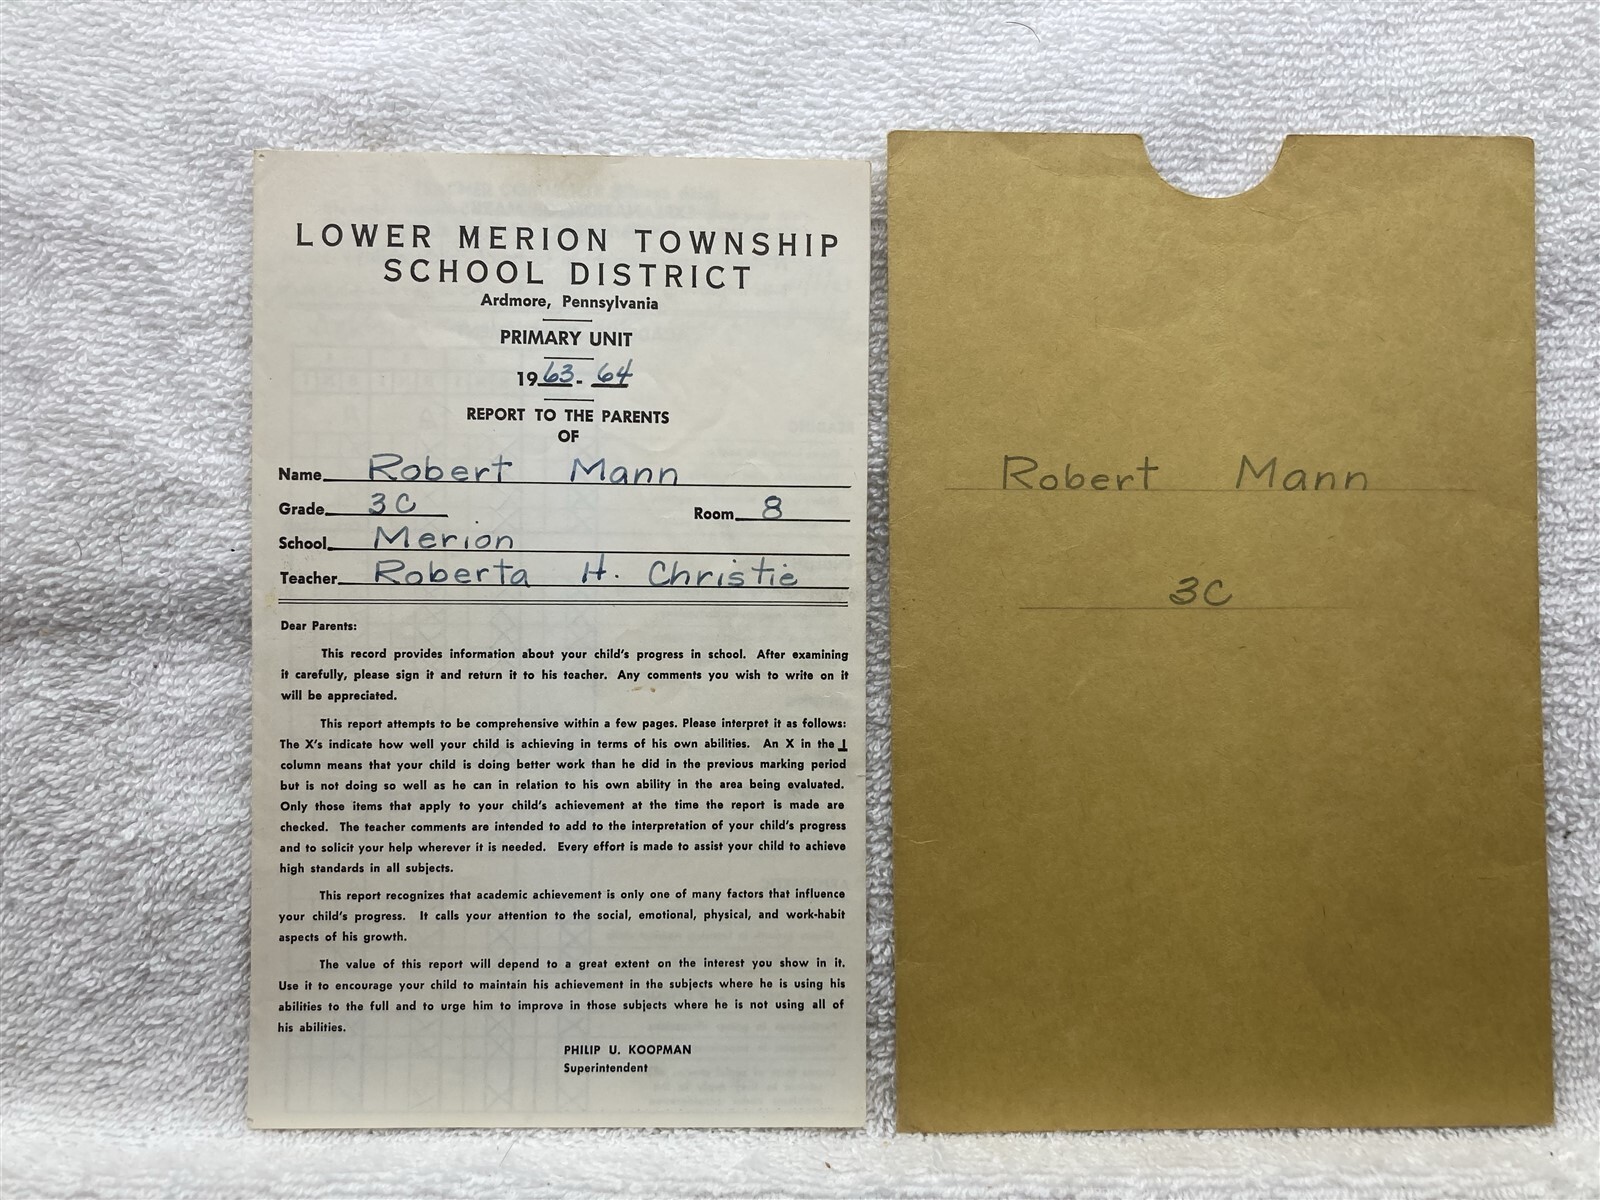 LOWER MERION TOWNSHIP
SCHOOL DISTRICT
Ardmore, Pennsylvania
PRIMARY UNIT
1963-64
REPORT TO THE PARENTS
OF
Name Robert Mann
Grade 3C Room 8
School Merion
Teacher Roberta H. Christie
Dear Parents:
This record provides information about your child's progress in school. After examining
it carefully, please sign it and return it to his teacher. Any comments you wish to write on it
will be appreciated.
This report attempts to be comprehensive within a few pages. Please interpret it as follows:
The X's indicate how well your child is achieving in terms of his own abilities. An X in the I
column means that your child is doing better work than he did in the previous marking period
but is not doing so well as he can in relation to his own ability in the area being evaluated.
Only those items that apply to your child's achievement at the time the report is made are
checked. The teacher comments are intended to add to the interpretation of your child's progress
and to solicit your help wherever it is needed. Every effort is made to assist your child to achieve
high standards in all subjects.
This report recognizes that academic achievement is only one of many factors that influence
your child's progress. It calls your attention to the social, emotional, physical, and work-habit
aspects of his growth.
The value of this report will depend to a great extent on the interest you show in it.
Use it to encourage your child to maintain his achievement in the subjects where he is using his
abilities to the full and to urge him to improve in those subjects where he is not using all of
his abilities.
PHILIP U. KOOPMAN
Superintendent
Robert Mann
3C